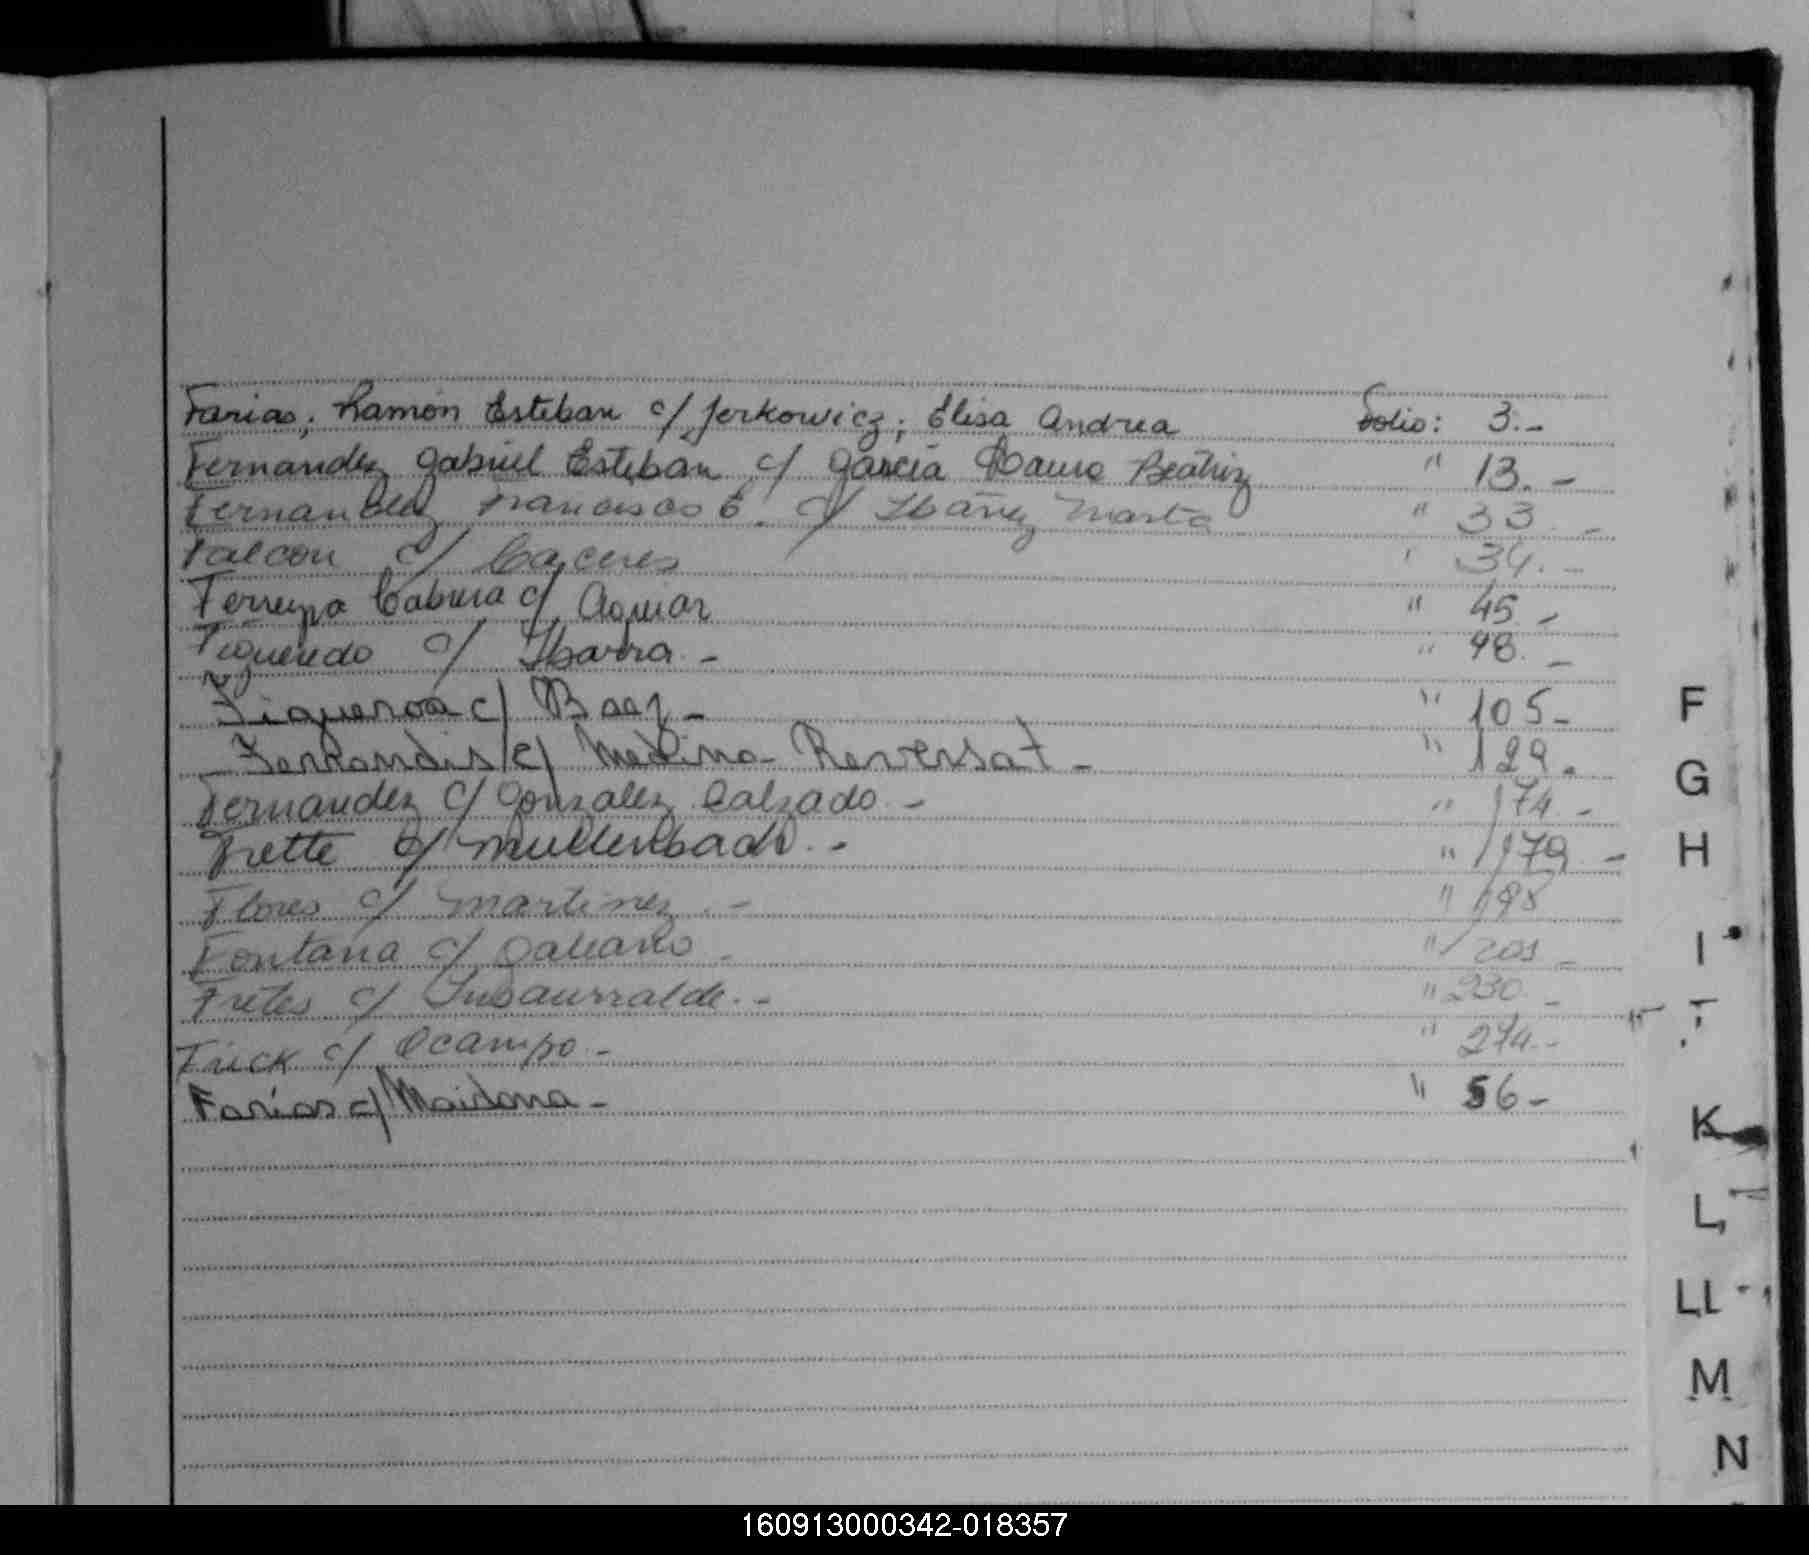 Farias, Ramón Esteban c/ Jerkowicz, Elisa Andrea Folio: 3.-
Fernandez Gabriel Esteban c/ Garcia Laura Beatriz " 13.-
Fernandez Francisco E. c/ Ibañez Marta " 33.-
Falcon c/ Caceres " 34.-
Ferreyra Cabrera c/ Aguiar " 45.-
Figueredo c/ Ibarra.- " 98.-
Figueroa c/ Baez- " 105-
Fernandis c/ Medina Reversat- " 129.
Fernandez c/ Gonzalez Calzado.- " 174.-
Frette c/ Mullenbach.- " 179.-
Flores c/ Martinez.- " 198
Fontana c/ Galeano.- " 201-
Fretes c/ Insaurralde.- " 230.-
Frick c/ Ocampo.- " 274.-
Farias c/ Maidana- " 56-
F
G
H
I
K
L
LL
M
N
160913000342-018357